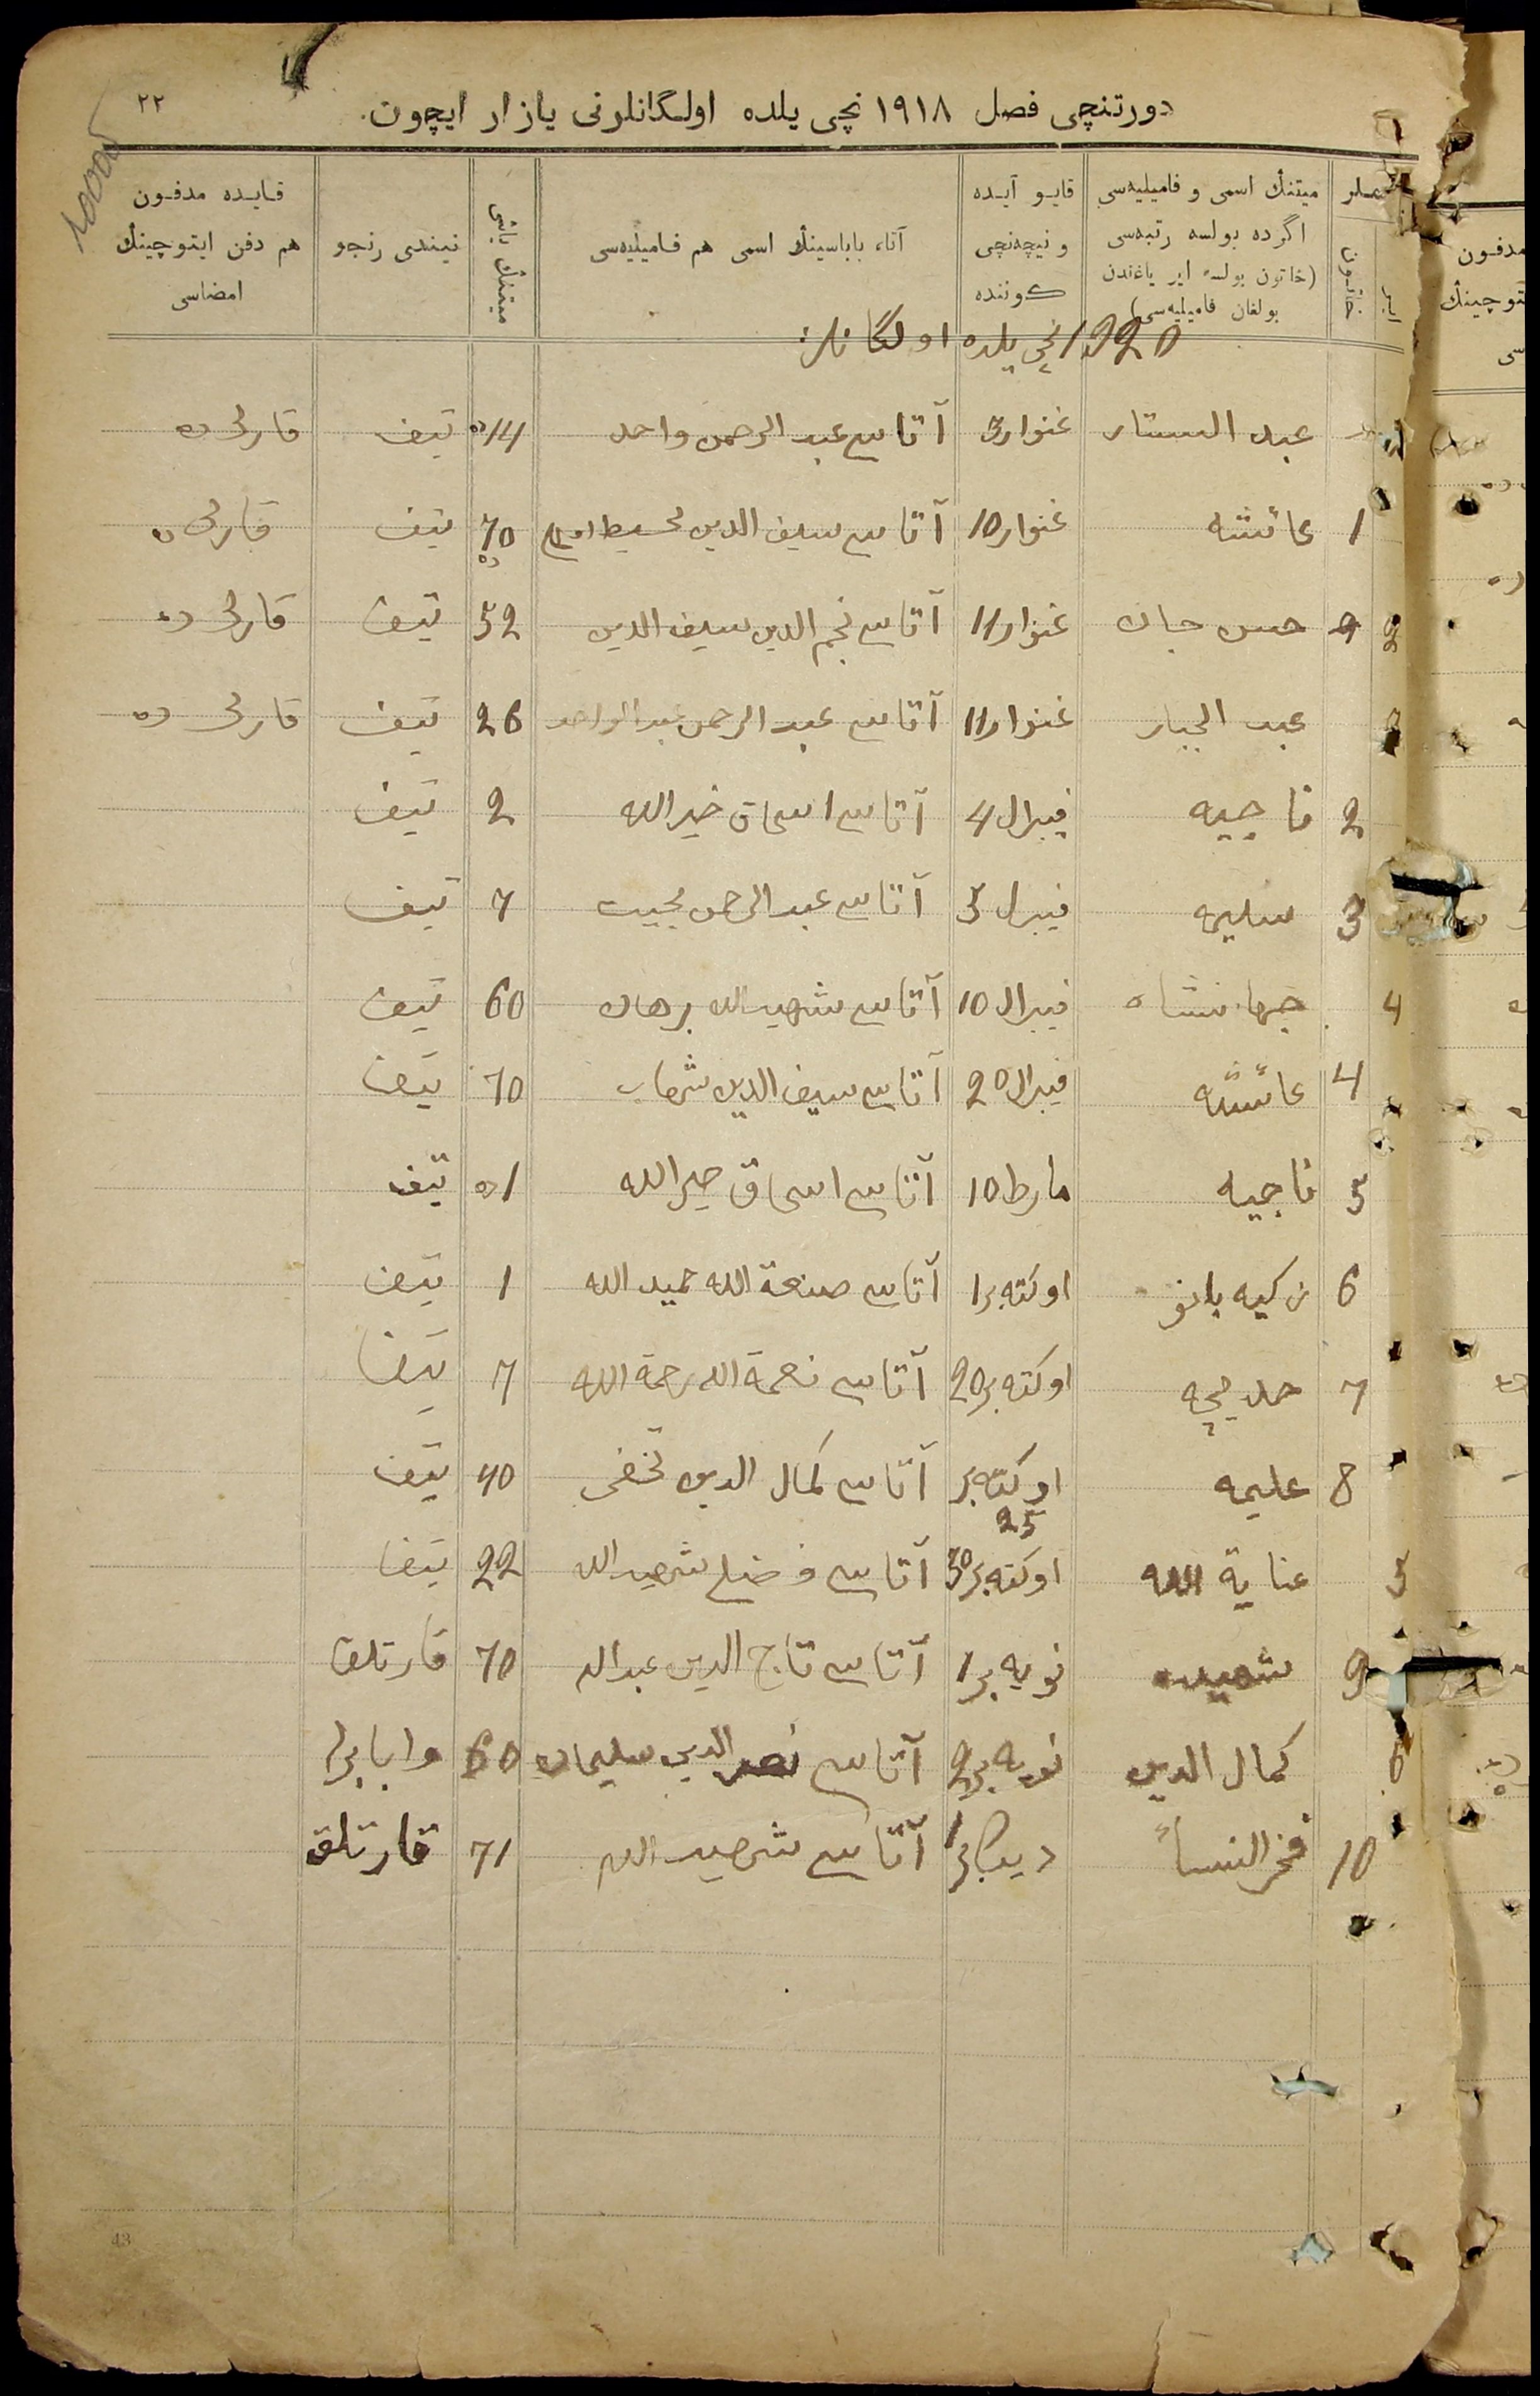 دورتنچی فصل ۱۹۱۸ نچی یلده اولگانلرنی یازار ایچون.
۲۲
میتنڭ اسمی و فامیلیه‌سی
اگرده بولسه رتبه‌سی
(خاتون بولسه ایر یاغندن
بولغان فامیلیه‌سی)
قایو آیده
و نیچه‌نچی
کوننده
آتا، باباسینڭ اسمی هم فامیلیه‌سی
میتنڭ یاشی
نیندی رنجو
قایده مدفون
هم دفن ایتوچینڭ
امضاسی
خاتون
ایر
1920 نچی یلده اولگانلر:
عبد الستار غنوار 5 آتاسی عبد الرحمن واحد 14 تیف
1 عائشه غنوار 10 آتاسی سیف الدین 70 تیف
2 حسن جان غنوار 11 آتاسی نجم الدین سیف الدین 52 تیف
3 عبد الجبار غنوار 11 آتاسی عبد الرحمن عبد الواحد 26 تیف
2 ناجیه فیبرال 4 آتاسی اسحاق خیرالله 2 تیف
3 سلیمه فیبرل 5 آتاسی عبد الرحمن مجیب 7 تیف
4 جهانشاه فیبرال 10 آتاسی شهید الله برهان 60 تیف
4 عائشه فیبرال 20 آتاسی سیف الدین شهاب 70 تیف
5 ناجیه مارط 10 آتاسی اسحاق خیرالله 1 تیف
6 زکیه بانو اوکتەبر 1 آتاسی صنعة الله حمید الله 1 تیف
7 خدیجه اوکتەبر 20 آتاسی نعمة الله رحمة الله 7 تیف
8 علیمه اوکتەبر 25 آتاسی کمال الدین 40 تیف
5 عنایة الله اوکتەبر 30 آتاسی شهید الله 22 تیف
9 شهیده نویەبر 1 آتاسی تاج الدین عبد الله 70 قارتلق
6 کمال الدین نویەبر 2 آتاسی نصر الدین سلیمان 60
10 فخر النساء دیکابر 1 آتاسی شهید الله 71 قارتلق
43